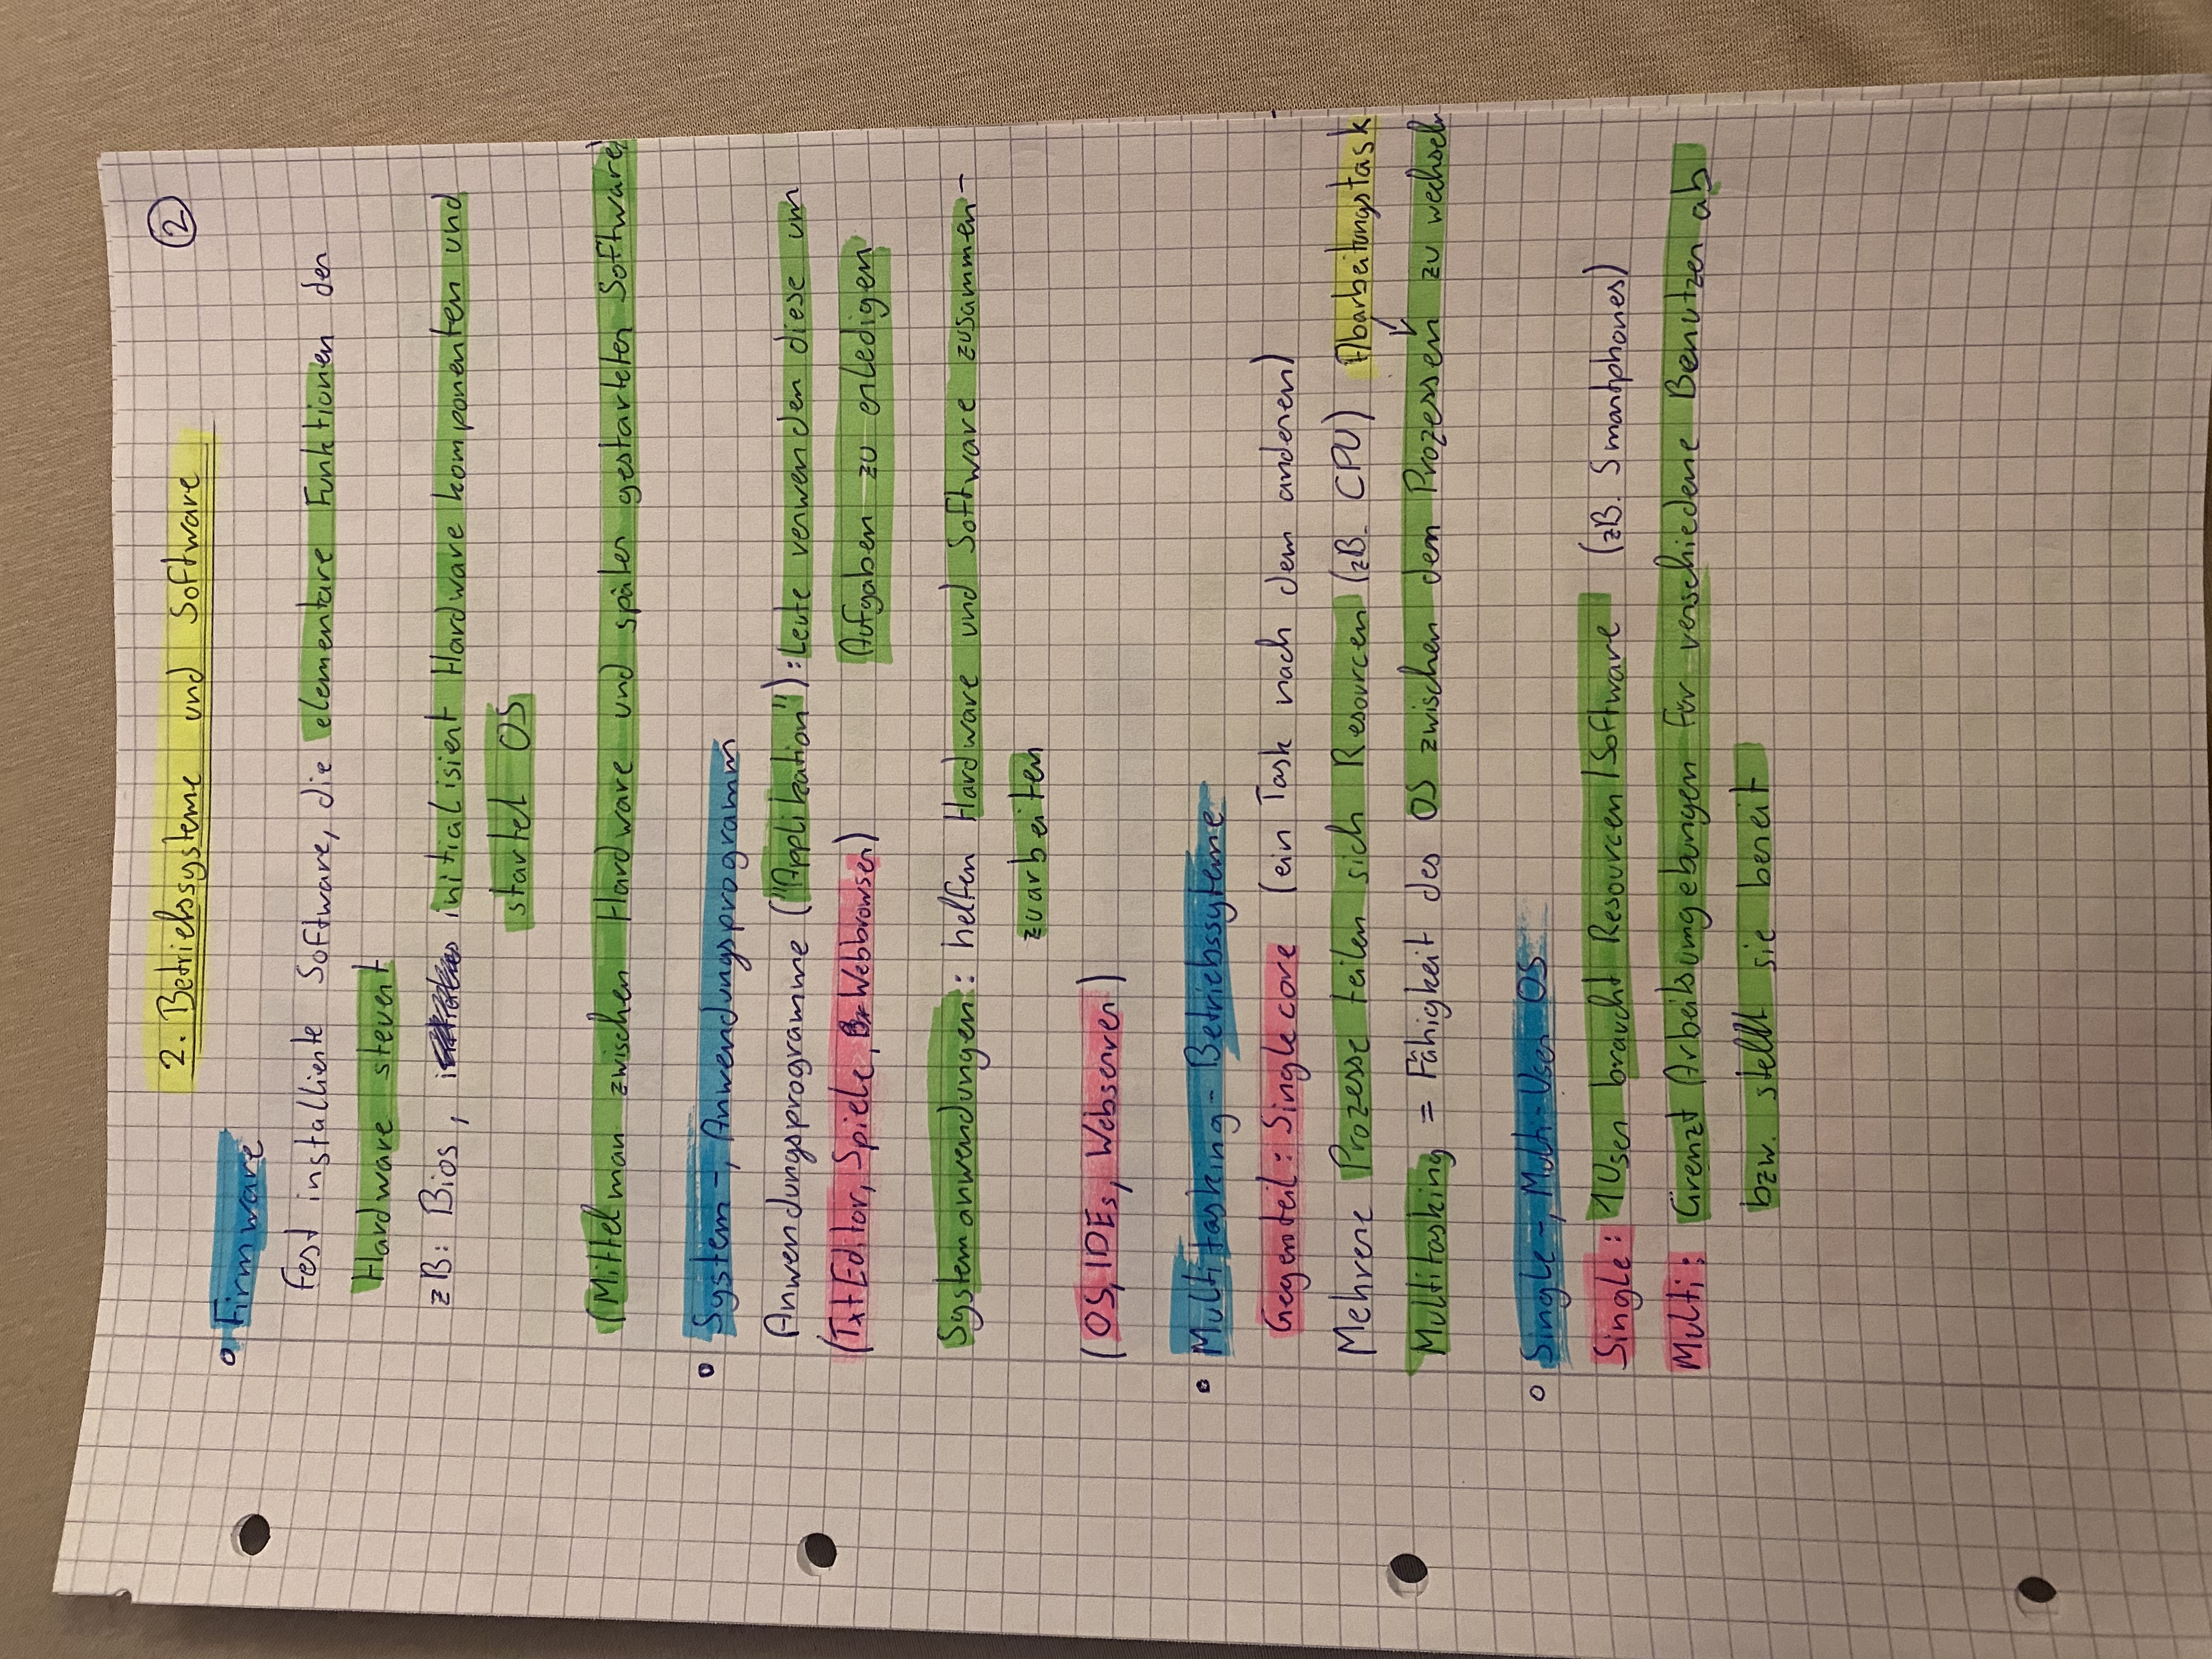 2. Betriebssysteme und Software
2
Firmware
Fest installierte Software, die elementare Funktionen der
Hardware steuert
zB: Bios, initialisiert Hardwarekomponenten und
startet OS
(Mittelman zwischen Hardware und später gestarteter Software)
System-, Anwendungsprogramm
Anwendungsprogramme ("Applikation"): Leute verwenden diese um
(Txt Editor, Spiele, Webbrowser) Aufgaben zu erledigen
Systemanwendungen: helfen Hardware und Software zusammen-
zuarbeiten
(OS, IDEs, Webserver)
Multitasking-Betriebssyteme
Gegenteil: Singlecore (ein Task nach dem anderen)
Mehrere Prozesse teilen sich Resourcen (zB. CPU) Abarbeitungstask
Multitasking = Fähigkeit des OS zwischen den Prozessen zu wechseln
Single-, Multi-User OS
Single: 1 User braucht Resourcen/Software (zB. Smartphones)
Multi: Grenzt Arbeitsumgebungen für verschiedene Benutzer ab
bzw. stellt sie bereit